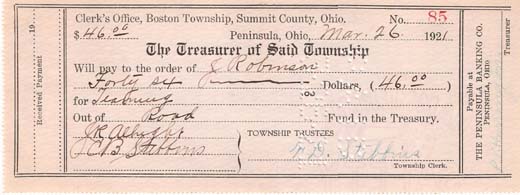 Clerk's Office, Boston Township, Summit County, Ohio. No. 85
$46.00 Peninsula, Ohio, Mar. 26 1921
The Treasurer of Said Township
Will pay to the order of J Robinson
Forty six Dollars, (46.00)
for
Out of Road Fund in the Treasury.
TOWNSHIP TRUSTEES
Stebbins
Township Clerk.
19
Received Payment
Payable at
THE PENINSULA BANKING CO.
PENINSULA, OHIO